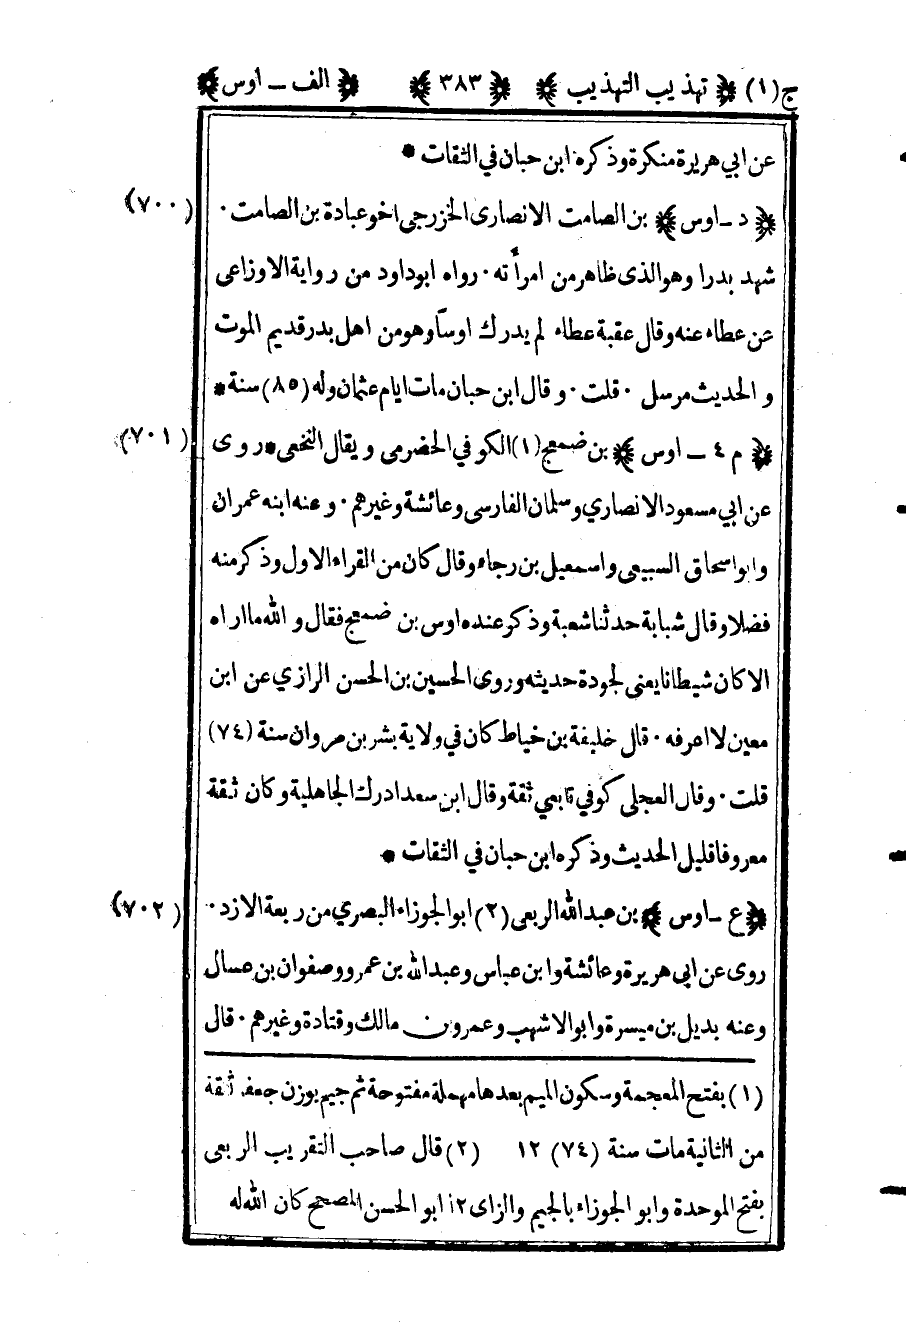 ج(١) ﴿ تهذيب التهذيب ﴾ ﴿ ٣٨٣ ﴾ ﴿ الف ـ اوس ﴾
عن ابي هريرة منكرة وذكره ابن حبان في الثقات *
﴿ د ـ اوس ﴾ بن الصامت الانصارى الخزرجي اخو عبادة بن الصامت ٠ (٧٠٠)
شهد بدرا وهو الذى ظاهر من امرأته ٠ رواه ابوداود من رواية الاوزاعى
عن عطاء عنه وقال عقبة عطاء لم يدرك اوساً وهو من اهل بدر قديم الموت
و الحديث مرسل ٠ قلت ٠ و قال ابن حبان مات ايام عثمان وله (٨٥) سنة *
﴿ م ٤ ـ اوس ﴾ بن ضمعج (١) الكوفي الحضرمى ويقال النخعى * روى (٧٠١)
عن ابي مسعود الانصاري وسلمان الفارسى وعائشة وغيرهم ٠ وعنه ابنه عمران
وابو اسحاق السبيعى واسمعيل بن رجاء وقال كان من القراء الاول وذكر منه
فضلا وقال شبابة حدثنا شعبة وذكر عنده اوس بن ضمعج فقال و الله ما اراه
الا كان شيطانا يعنى لجودة حديثه وروى الحسين بن الحسن الرازي عن ابن
معين لا اعرفه ٠ قال خليفة بن خياط كان في ولاية بشر بن مروان سنة (٧٤)
قلت ٠ وقال العجلى كوفي تابعي ثقة وقال ابن سعد ادرك الجاهلية وكان ثقة
معروفا قليل الحديث وذكره ابن حبان في الثقات *
﴿ ع ـ اوس ﴾ بن عبد الله الربعى (٢) ابو الجوزاء البصري من ربعة الازد ٠ (٧٠٢)
روى عن ابى هريرة وعائشة وابن عباس وعبد الله بن عمرو وصفوان بن عسال
وعنه بديل بن ميسرة وابو الاشهب وعمرو بن مالك وقتادة وغيرهم ٠ قال
(١) بفتح المعجمة وسكون الميم بعدها مهملة مفتوحة ثم جيم بوزن جعفر ثقة
من الثانية مات سنة (٧٤) ١٢ (٢) قال صاحب التقريب الربعى
بفتح الموحدة وابو الجوزاء بالجيم والزاى ١٢ ابو الحسن المصحح كان الله له